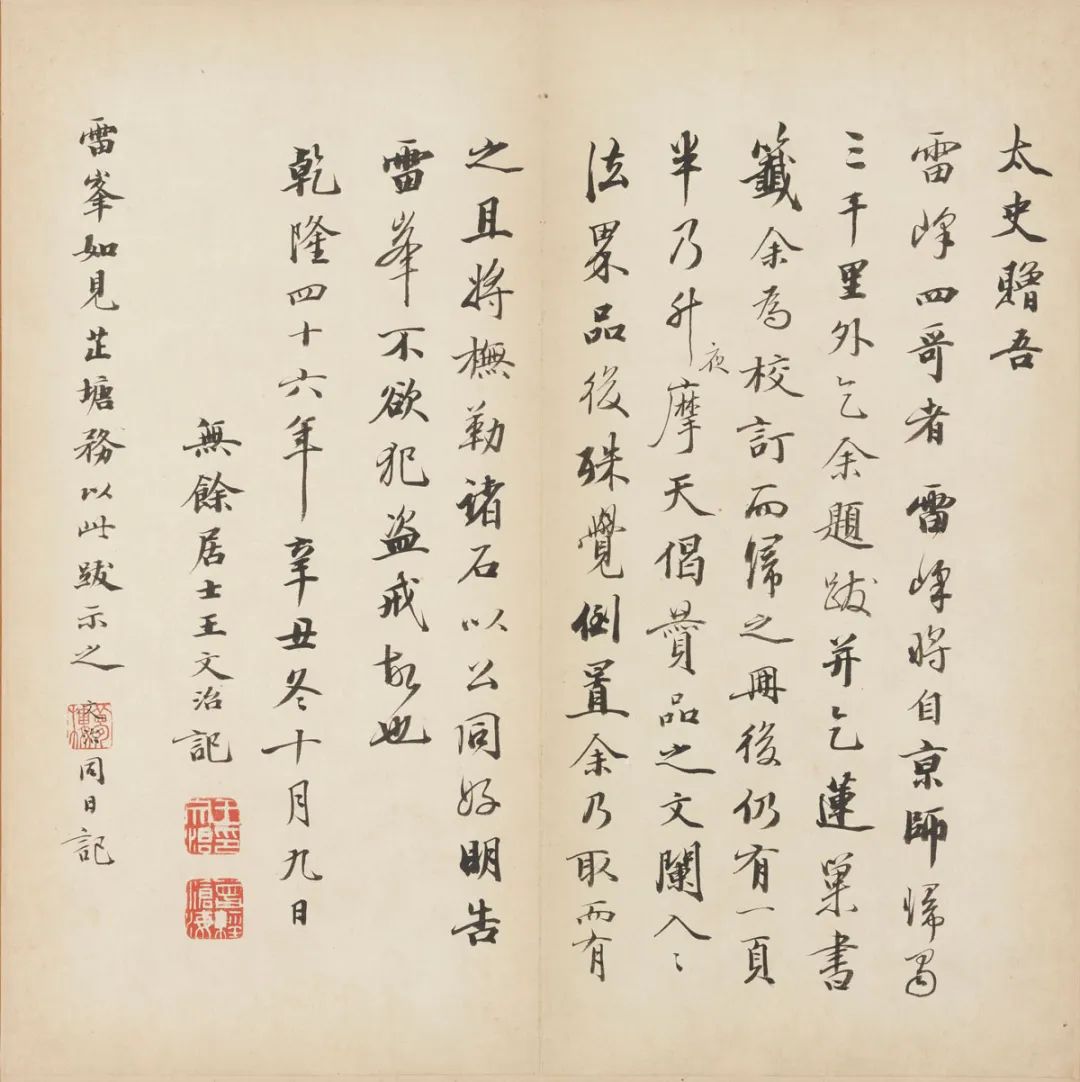 太史贈吾
雷峰四哥者雷峰將自京師歸蜀
三千里外乞余題跋并乞蓮巢書
籤余為校訂而歸之冊後仍有一頁
半乃升夜摩天偈贊品之文闌入〻
法界品後殊覺倒置余乃取而有
之且將橅勒諸石以公同好明告
雷峯不欲犯盜戒故也
乾隆四十六年辛丑冬十月九日
無餘居士王文治記
王印文治
曾經滄海
雷峯如見芷塘務以此跋示之文治同日記
夢樓